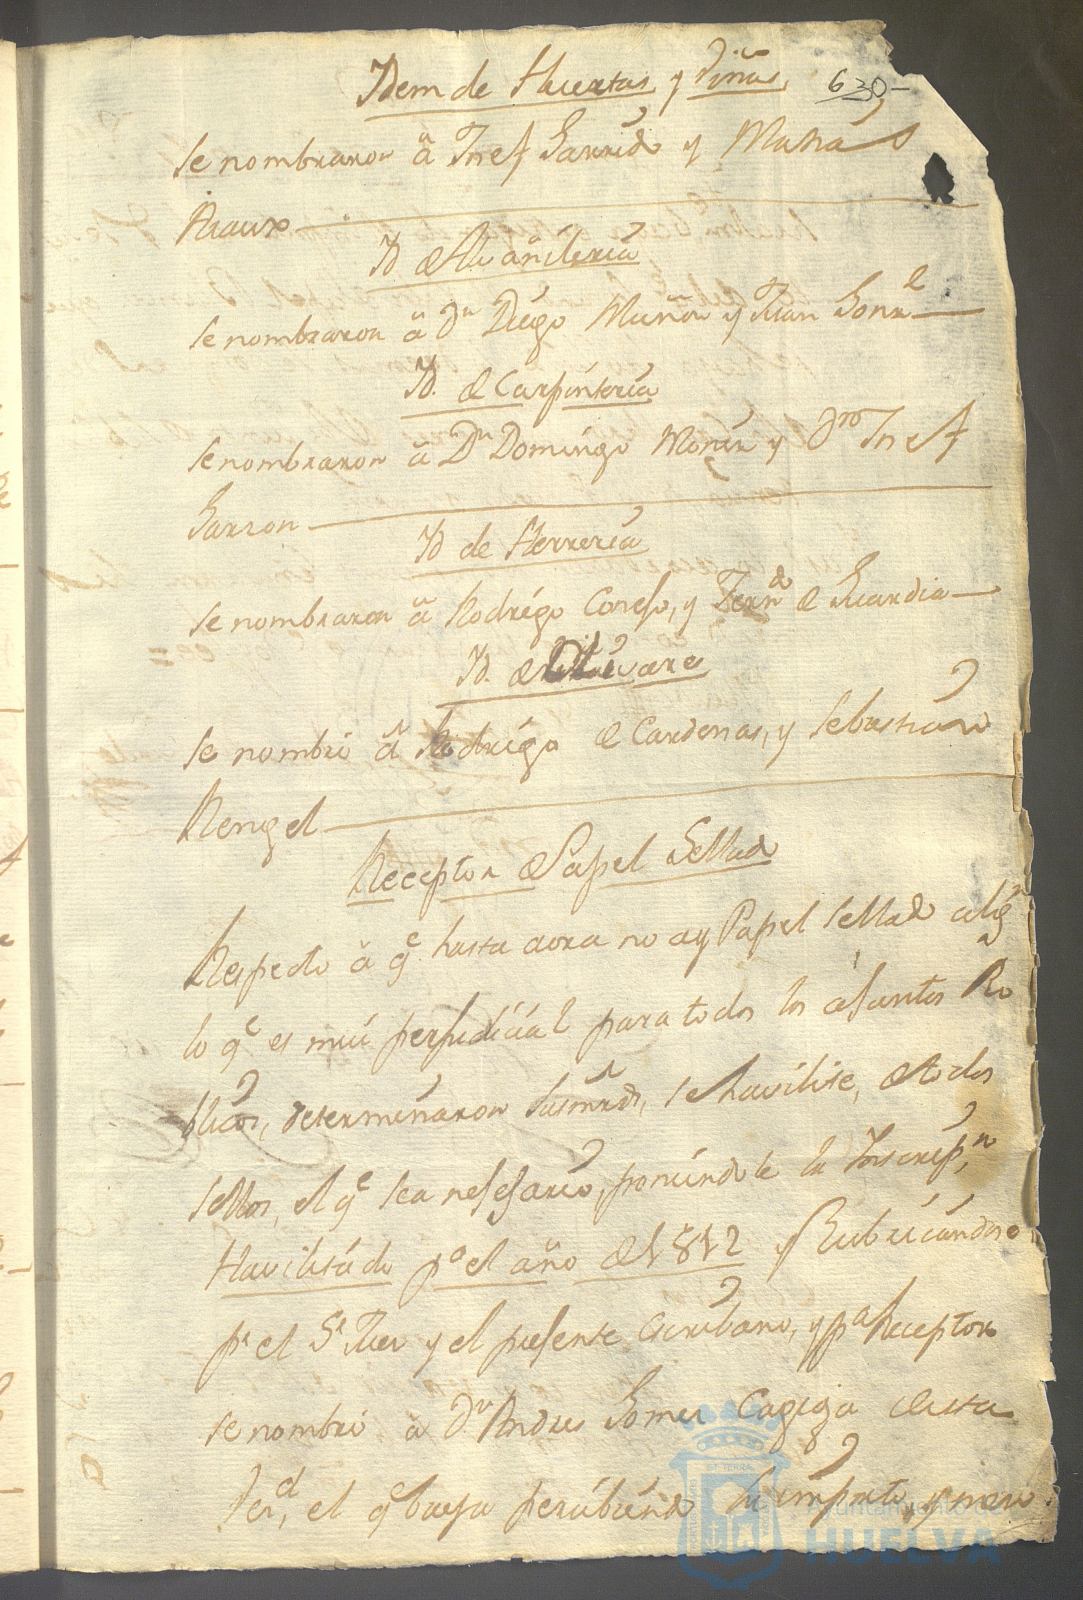 Idem de Huertas y Viñas, 630
se nombraron â Josef Garrido y Matias
Id de Alvañileria
se nombraron â Dn Diego Muñoz y Juan Gonzl
Id. de Carpinteria
se nombraron â Dn Domingo y Josef
Garzon
Id de Herreria
se nombraron â Rodrigo y Ferndo de Guardia
Id. de Olivares
se nombró â Rodrigo de Cardenas, y Sebastian
Rengel
Receptor de Papel Sellado
Respecto â qe hasta aora no ay Papel sellado algn
lo qe es mui perjudicial para todos los asuntos Pu
blicos, determinaron sus mrds, se havilite, de todos
sellos, el qe sea nesesario, poniendose la Inscripn
Havilitado pa el año de 1812 y Rubricandose
pr el Sr Juez y el presente Escribano, y pa Receptor
se nombró â Dn Andres Gomez Cagiga de esta
el qe baya persibiendo su importe, y
Ayuntamiento de
HUELVA